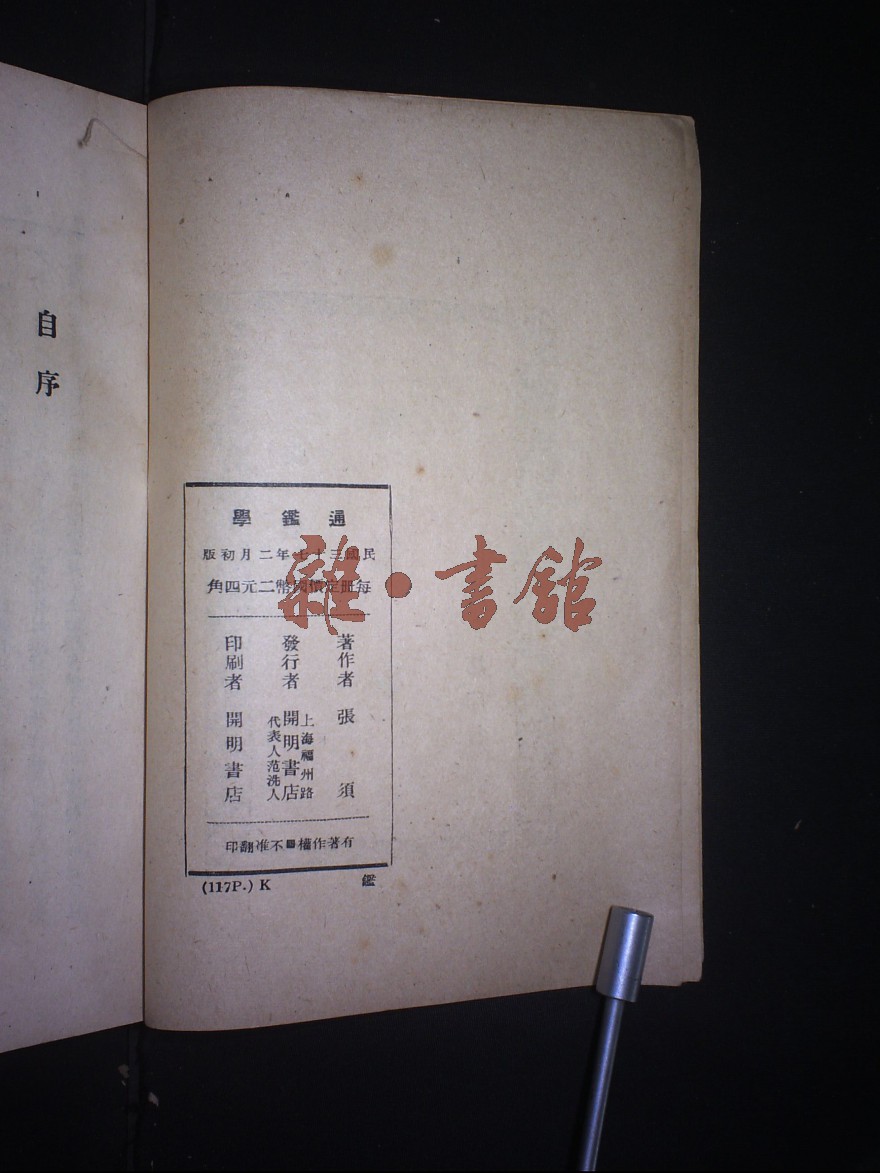 自序
通鑑學
民國三十七年二月初版
每冊定價國幣二元四角
著作者 張須
發行者
上海福州路
開明書店
代表人范洗人
印刷者 開明書店
有著作權■不准翻印
(117P.) K 鑑
雜・書館